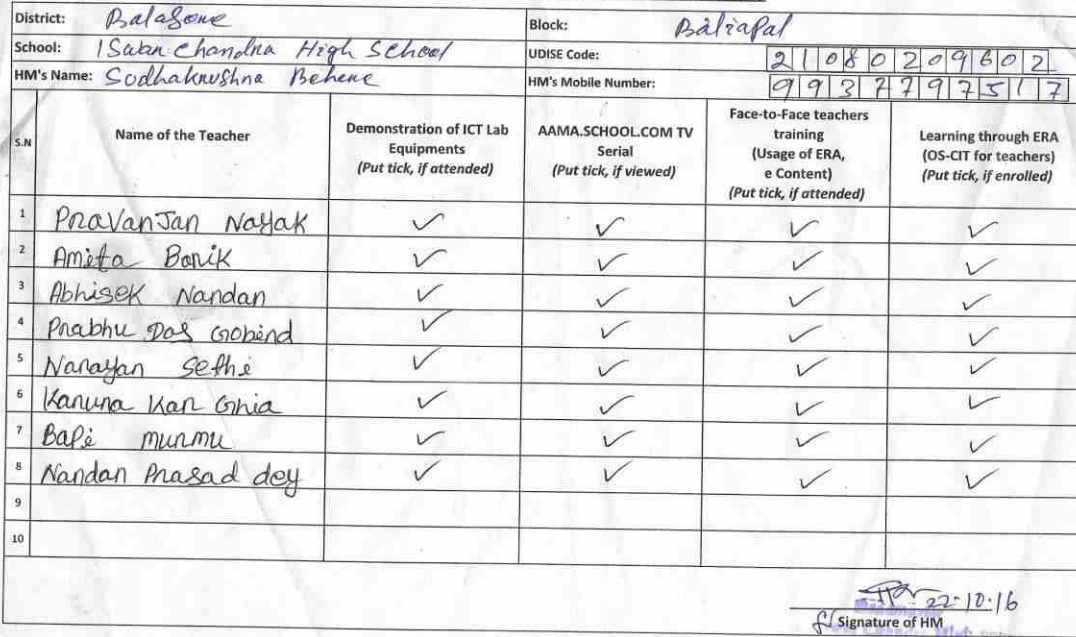 District: Balasore Block: Baliapal
School: ISwan Chandra High School UDISE Code: 21080209602
HM's Name: Sodhakrushna Behene HM's Mobile Number: 9937797517
S.N Name of the Teacher Demonstration of ICT Lab Equipments (Put tick, if attended) AAMA.SCHOOL.COM TV Serial (Put tick, if viewed) Face-to-Face teachers training (Usage of ERA, e Content) (Put tick, if attended) Learning through ERA (OS-CIT for teachers) (Put tick, if enrolled)
1 PraVanJan Nayak ✓ ✓ ✓ ✓
2 Amita Barik ✓ ✓ ✓ ✓
3 Abhisek Nandan ✓ ✓ ✓ ✓
4 Prabhu Das Gobind ✓ ✓ ✓ ✓
5 Narayan Sethi ✓ ✓ ✓ ✓
6 Karuna Kar Ghia ✓ ✓ ✓ ✓
7 Bapi murmu ✓ ✓ ✓ ✓
8 Nandan Prasad dey ✓ ✓ ✓ ✓
9
10
22.10.16
Signature of HM